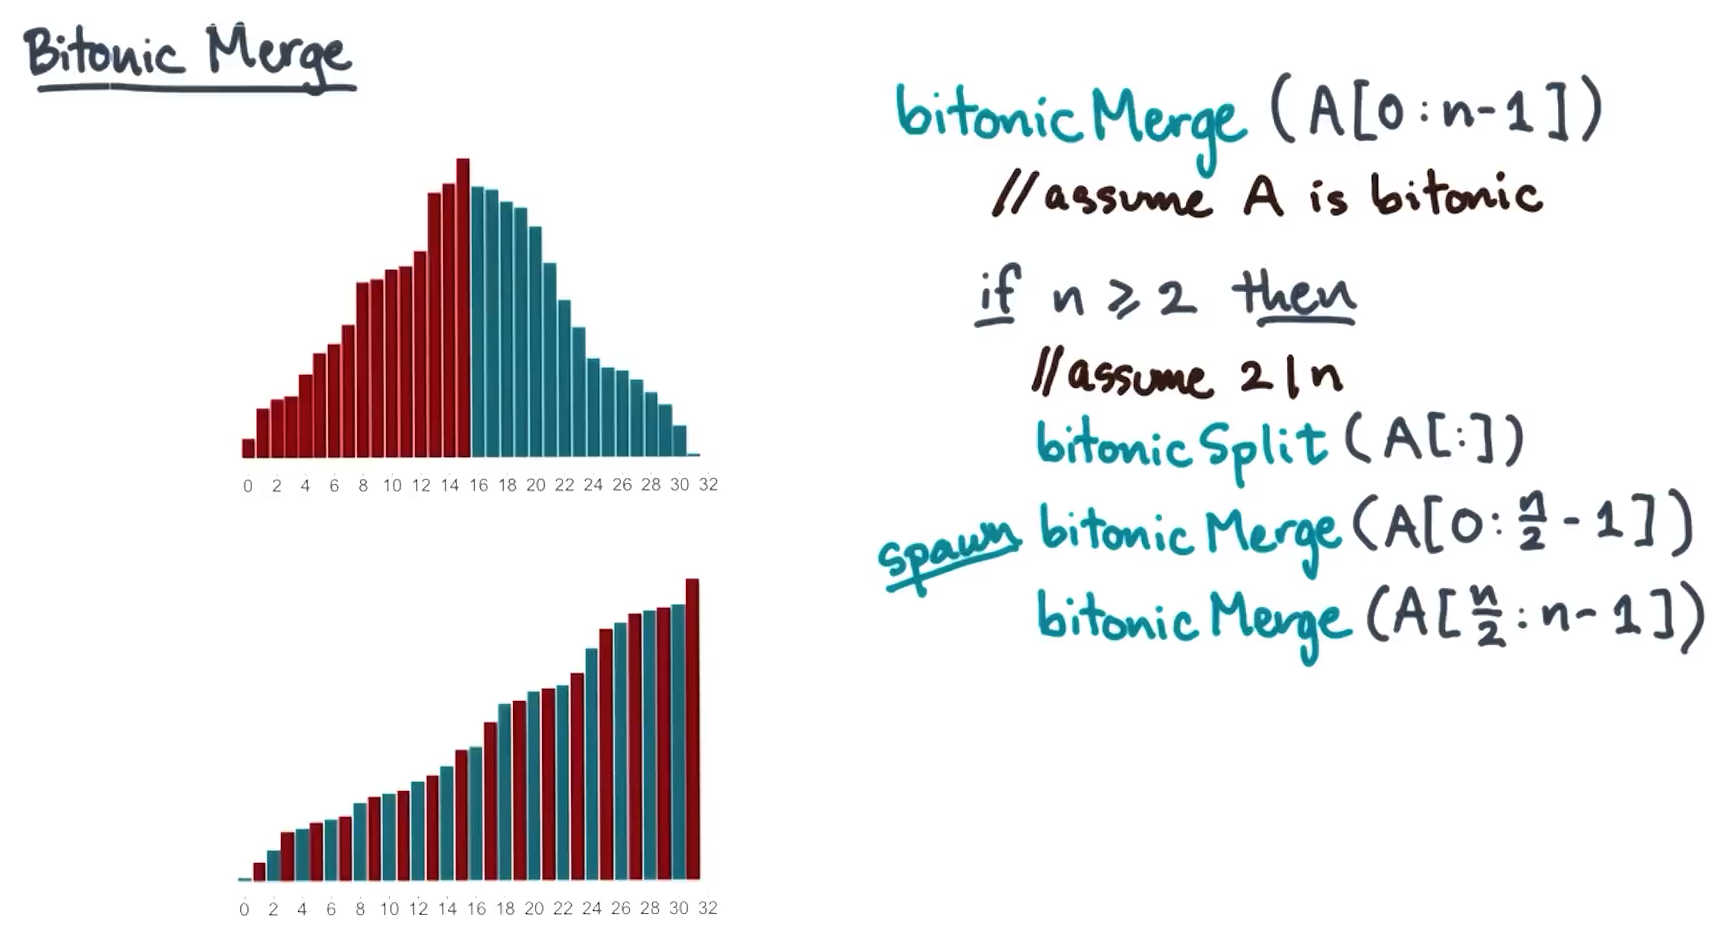 Bitonic Merge
0 2 4 6 8 10 12 14 16 18 20 22 24 26 28 30 32
0 2 4 6 8 10 12 14 16 18 20 22 24 26 28 30 32
bitonicMerge (A[0:n-1])
//assume A is bitonic
if n ≥ 2 then
//assume 2|n
bitonicSplit (A[:])
spawn bitonicMerge (A[0:n/2-1])
bitonicMerge (A[n/2:n-1])